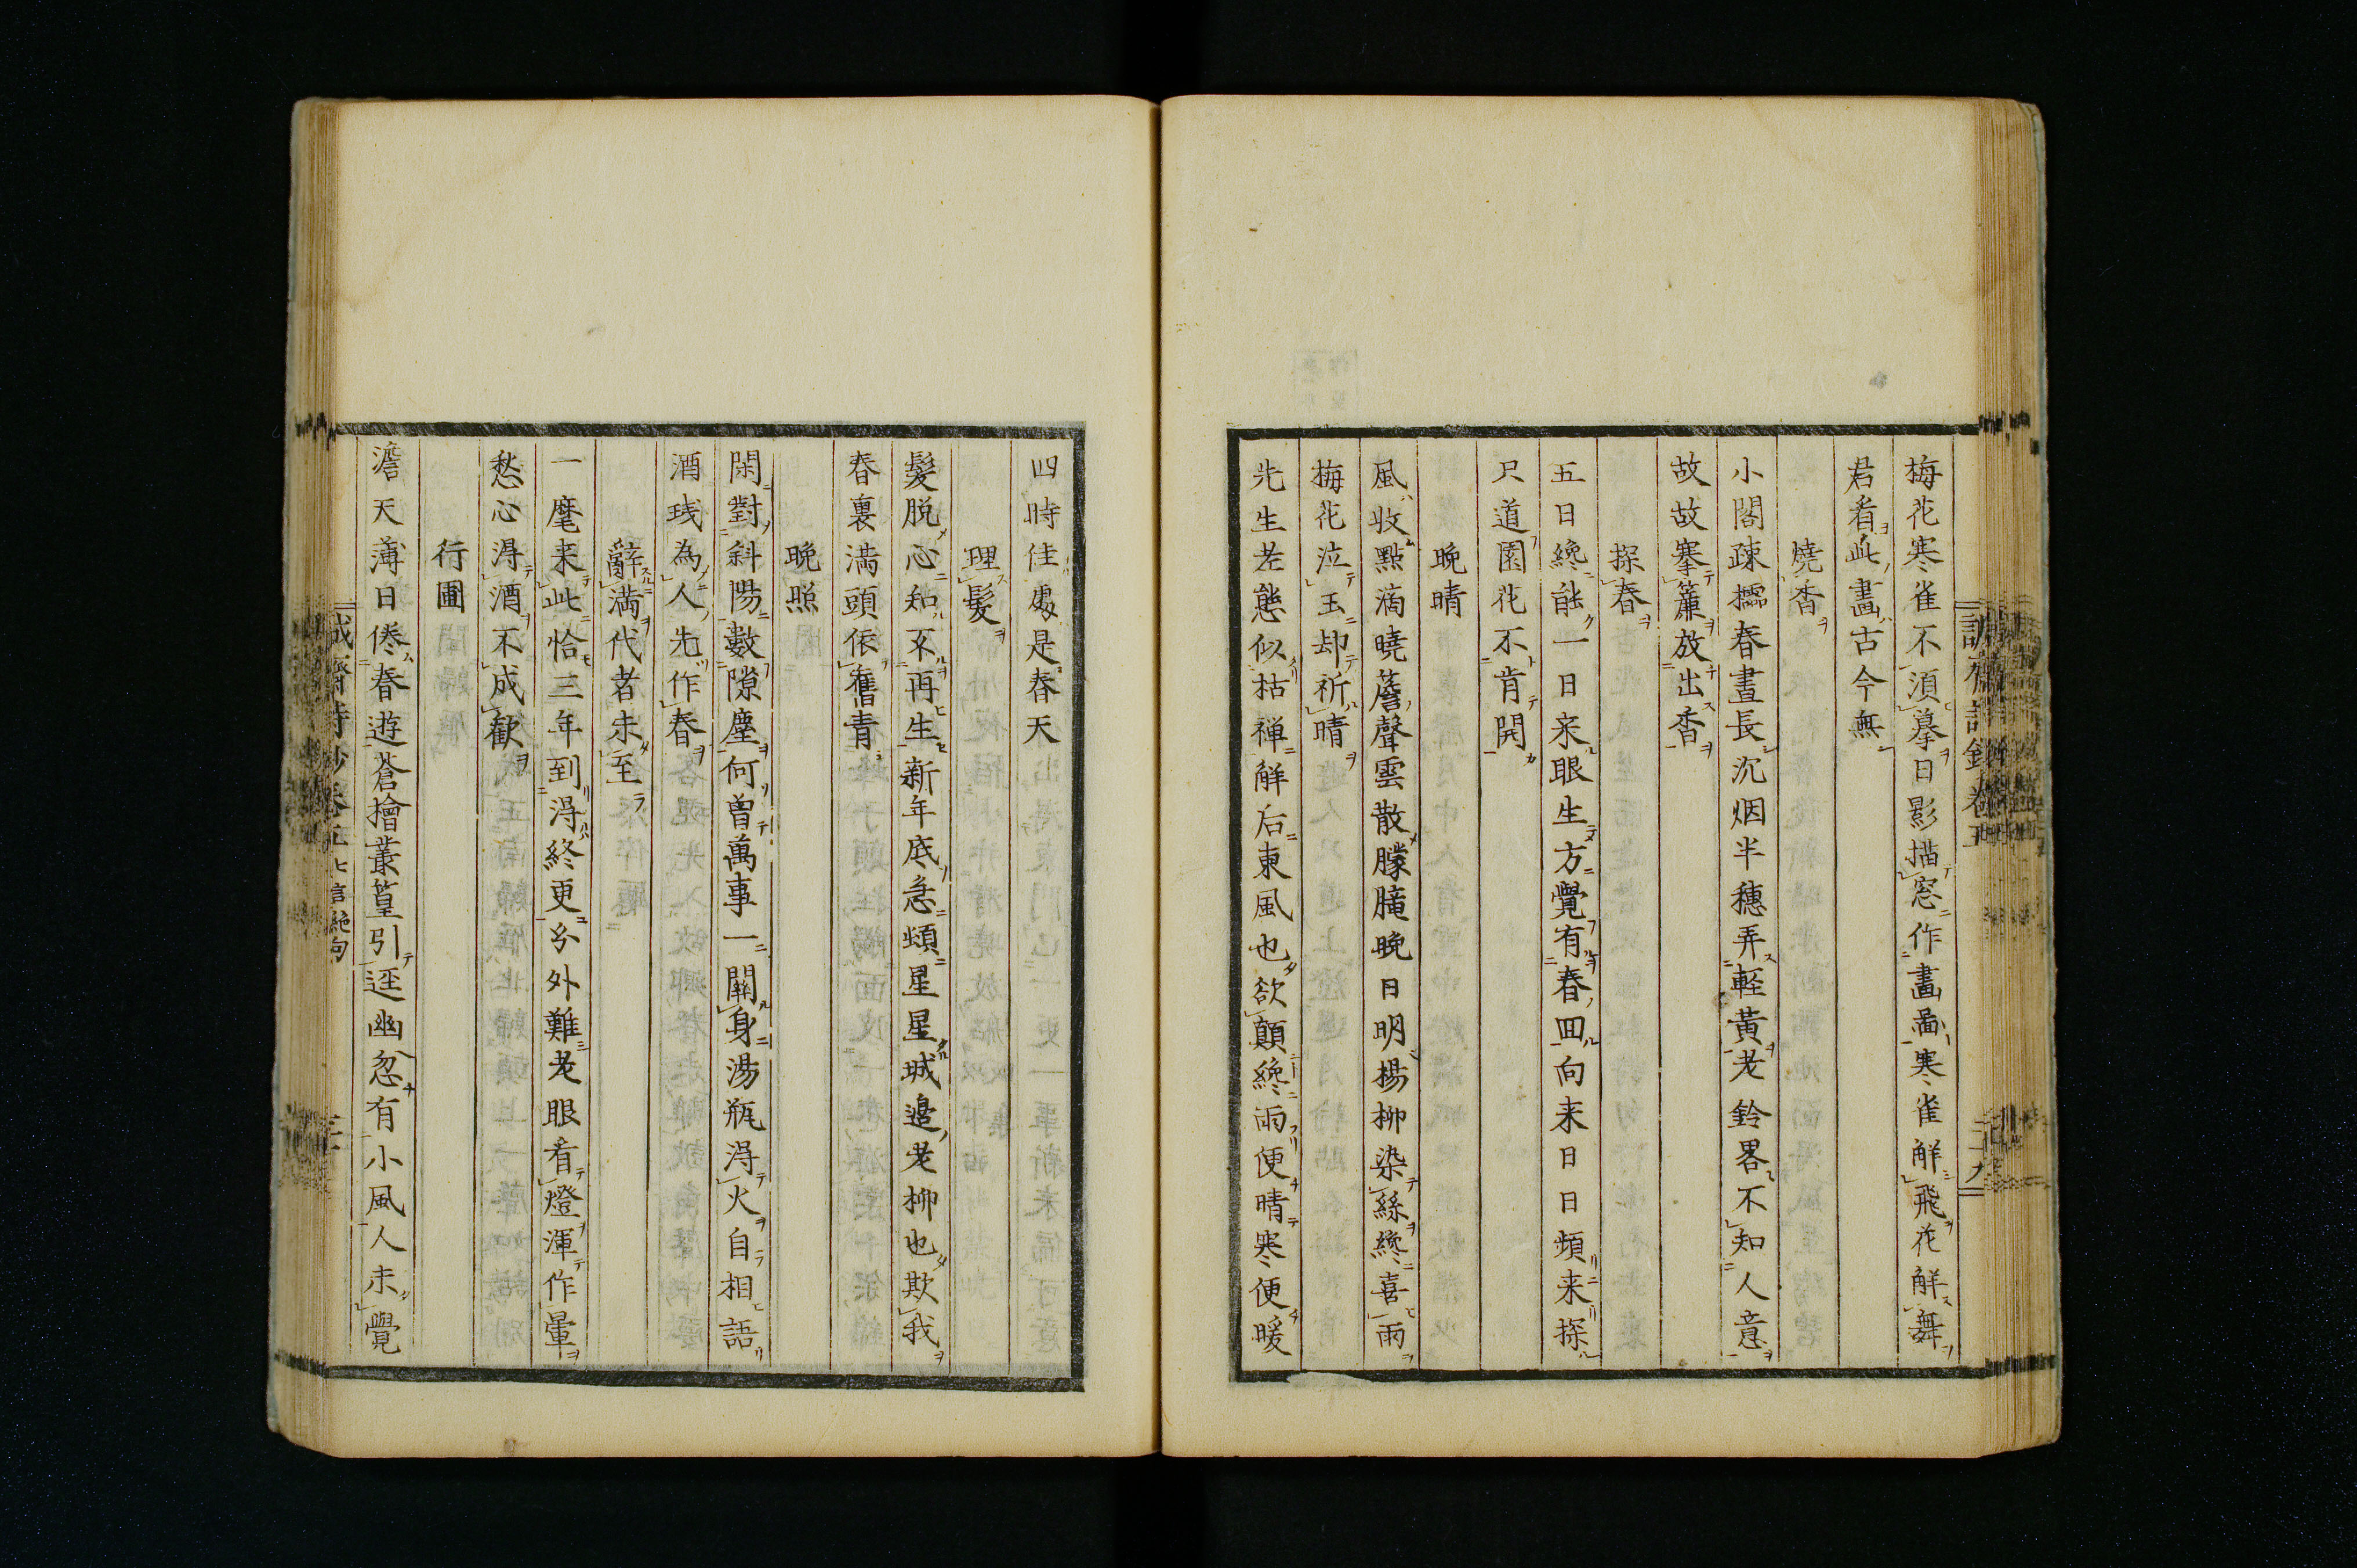 梅花寒雀不須摹日影描窓作畫啚寒雀解飛花解舞
君看此畫古今無
燒香
小閤疎櫺春晝長沉烟半穗弄輕黃老鈴畧不知人意
故故搴簾放出香
探春
五日纔能一日来眼生方覺有春回向来日日頻来探
只道園花不肯開
晩晴
風收點滴曉簷聲雲散朦朧晩日明楊柳染絲纔喜雨
梅花泣玉却祈晴
先生老態似枯禅解后東風也欲顛纔雨便晴寒便暖
四時佳處是春天
理髮
髮脱心知不再生新年底急頻星星城邉老柳也欺我
春裏満頭依舊青
晩照
閑對斜陽數隙塵何曽萬事一關身湯瓶淂火自相語
酒琖為人先作春
辭満代者未至
一麾来此恰三年到淂終更分外難老眼看燈渾作暈
愁心淂酒不成歡
行圃
澹天薄日倦春遊蒼檜叢篁引逕幽忽有小風人未覺
誠齋詩鈔卷五 七言絶句